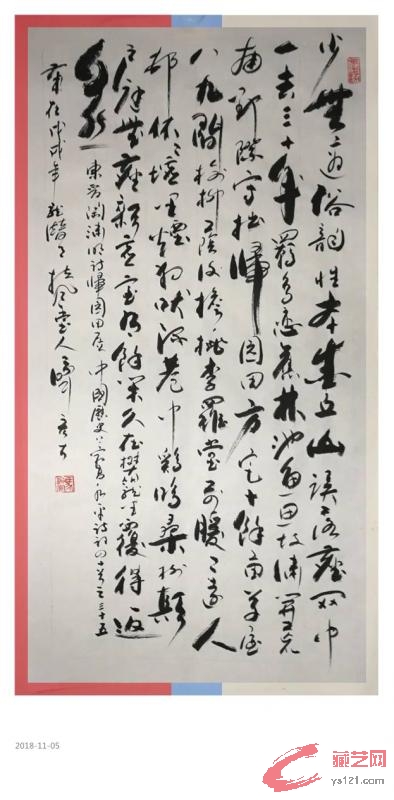 少無適俗韻性本愛丘山誤落塵网中
一去三十年羈鳥戀舊林池魚思故淵開荒
南野際守拙歸園田方宅十餘畝草屋
八九間榆柳蔭後檐桃李羅堂前曖々遠人
邨依々墟里煙狗吠深巷中鷄鳴桑樹顛
戶庭無塵雜虛室有餘閑久在樊籠裏復得返
自然
東晉陶淵明詩歸園田居 中國歷史 詩詞四十首之三十五
歲在戊戌年
2018-11-05
藏艺网
ys121.com